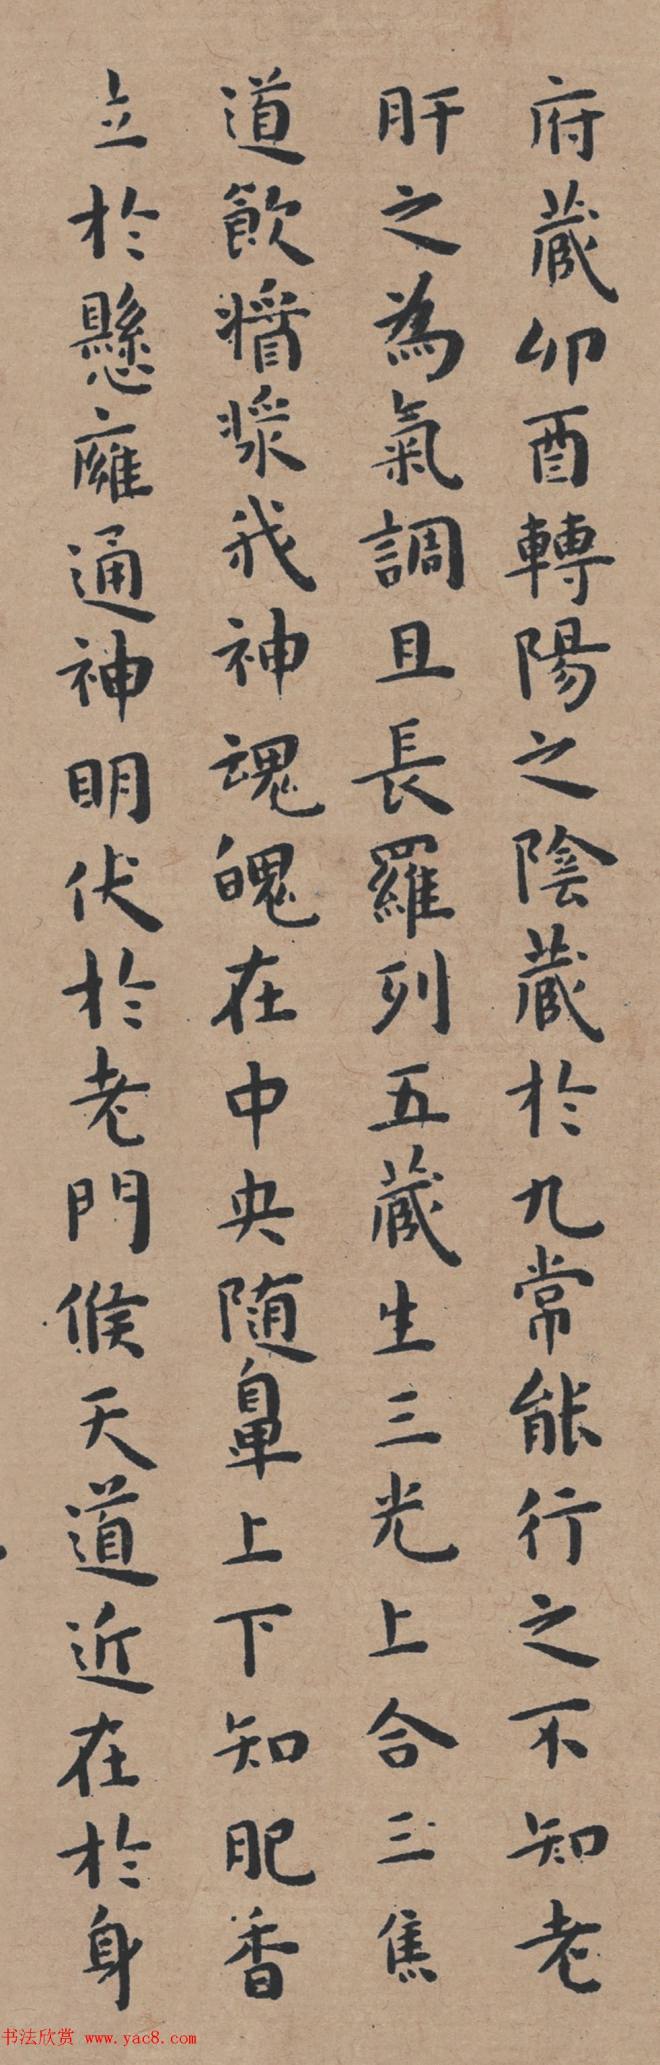 府藏卯酉轉陽之陰藏於九常能行之不知老
肝之為氣調且長羅列五藏生三光上合三焦
道飲醬漿我神魂魄在中央随鼻上下知肥香
立於懸癰通神明伏於老門候天道近在於身
书法欣赏 www.yac8.com